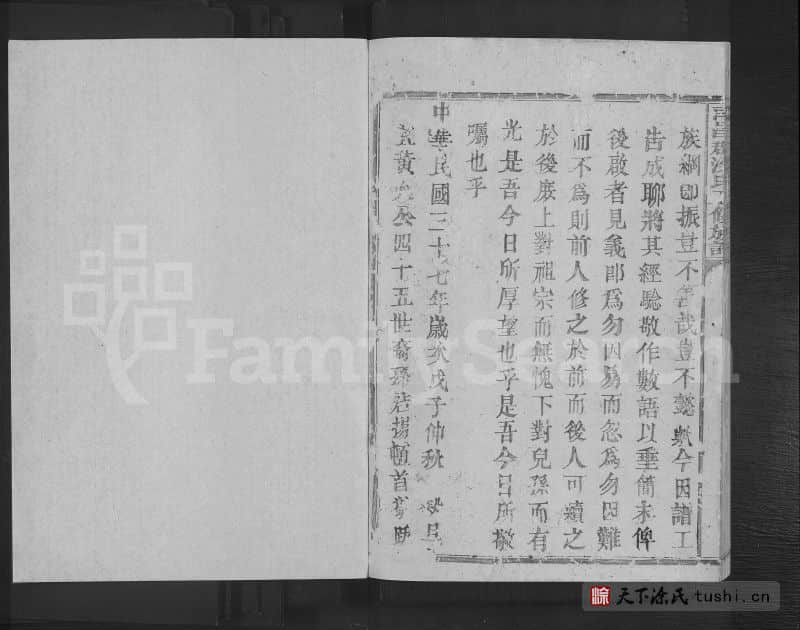 族綱即振豈不善哉豈不懿歟今因譜工
告成聊將其經驗敬作數語以垂簡末俾
後啟者見義即為勿因易而忽為勿因難
而不為則前人修之於前而後人可續之
於後庶上對祖宗而無愧下對兒孫而有
光是吾今日所厚望也乎是吾今日所敬
囑也乎
中華民國三十七年歲次戊子仲秋
黃 四十五世裔孫 揚頓首
FamilySearch
天下涂氏tushi.cn